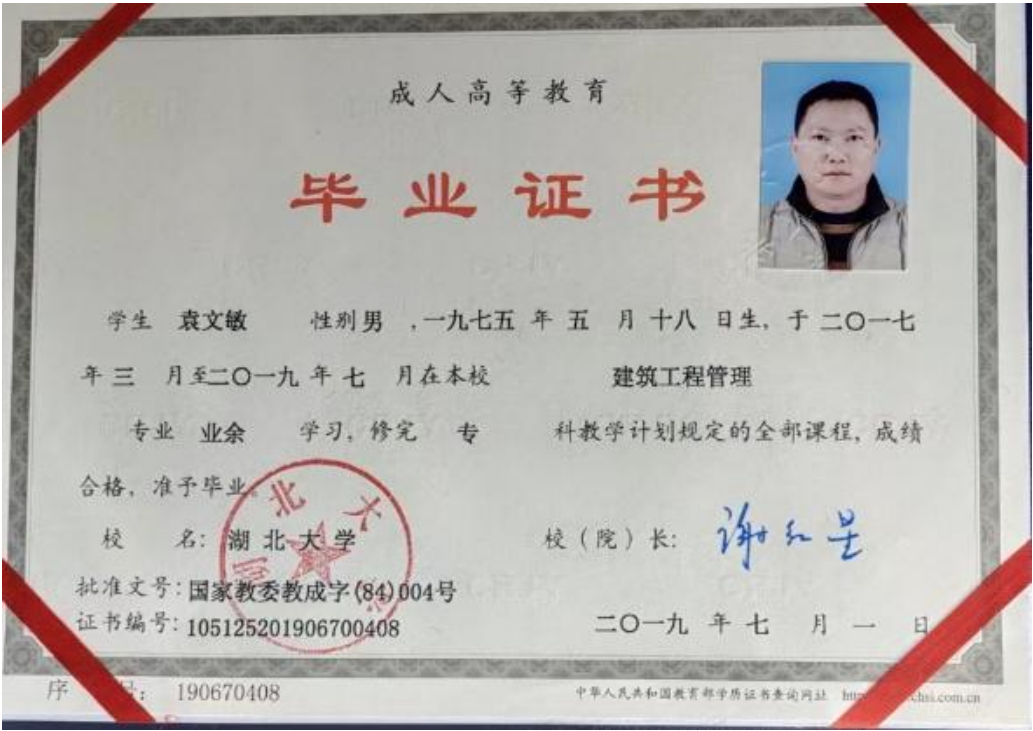 成人高等教育
毕业证书
学生 袁文敏 性别 男 ,一九七五 年 五 月 十八 日生, 于 二〇一七
年 三 月至二〇一九 年 七 月在本校 建筑工程管理
专业 业余 学习, 修完 专 科教学计划规定的全部课程, 成绩
合格, 准予毕业。
校 名: 湖北大学 校(院)长: 谢红星
批准文号: 国家教委教成字(84)004号
证书编号: 105125201906700408 二〇一九 年 七 月 一 日
序 号: 190670408 中华人民共和国教育部学历证书查询网址 chsi.com.cn
湖北大学